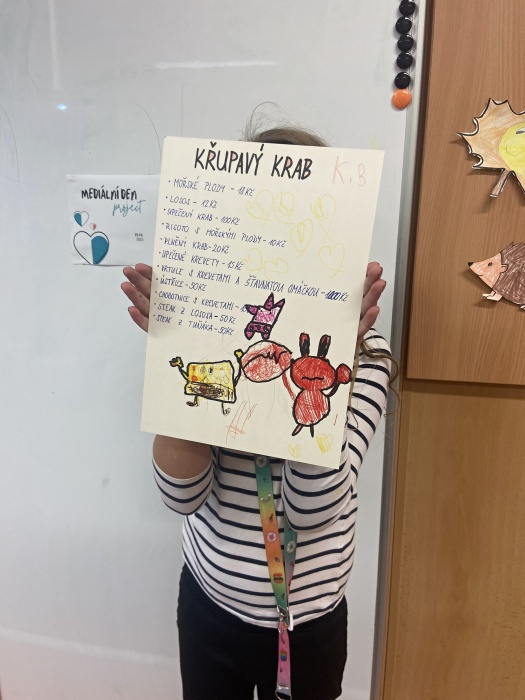 KŘUPAVÝ KRAB K.B
• MOŘSKÉ PLODY - 18 Kč
• LOSOS - 12 Kč
• UPEČENÝ KRAB - 100 Kč
• RIZOTO S MOŘSKÝMI PLODY - 10 Kč
• PLNĚNÝ KRAB - 20 Kč
• UPEČENÉ KREVETY - 15 Kč
S KREVETAMI A ŠŤAVNATOU OMÁČKOU - Kč
• ÚSTŘICE - 50 Kč
• CHOBOTNICE S KREVETAMI -
• STEAK Z LOSOSA - 50 Kč
• STEAK Z TUŇÁKA - 50 Kč
MEDIÁLNÍ DEN
project